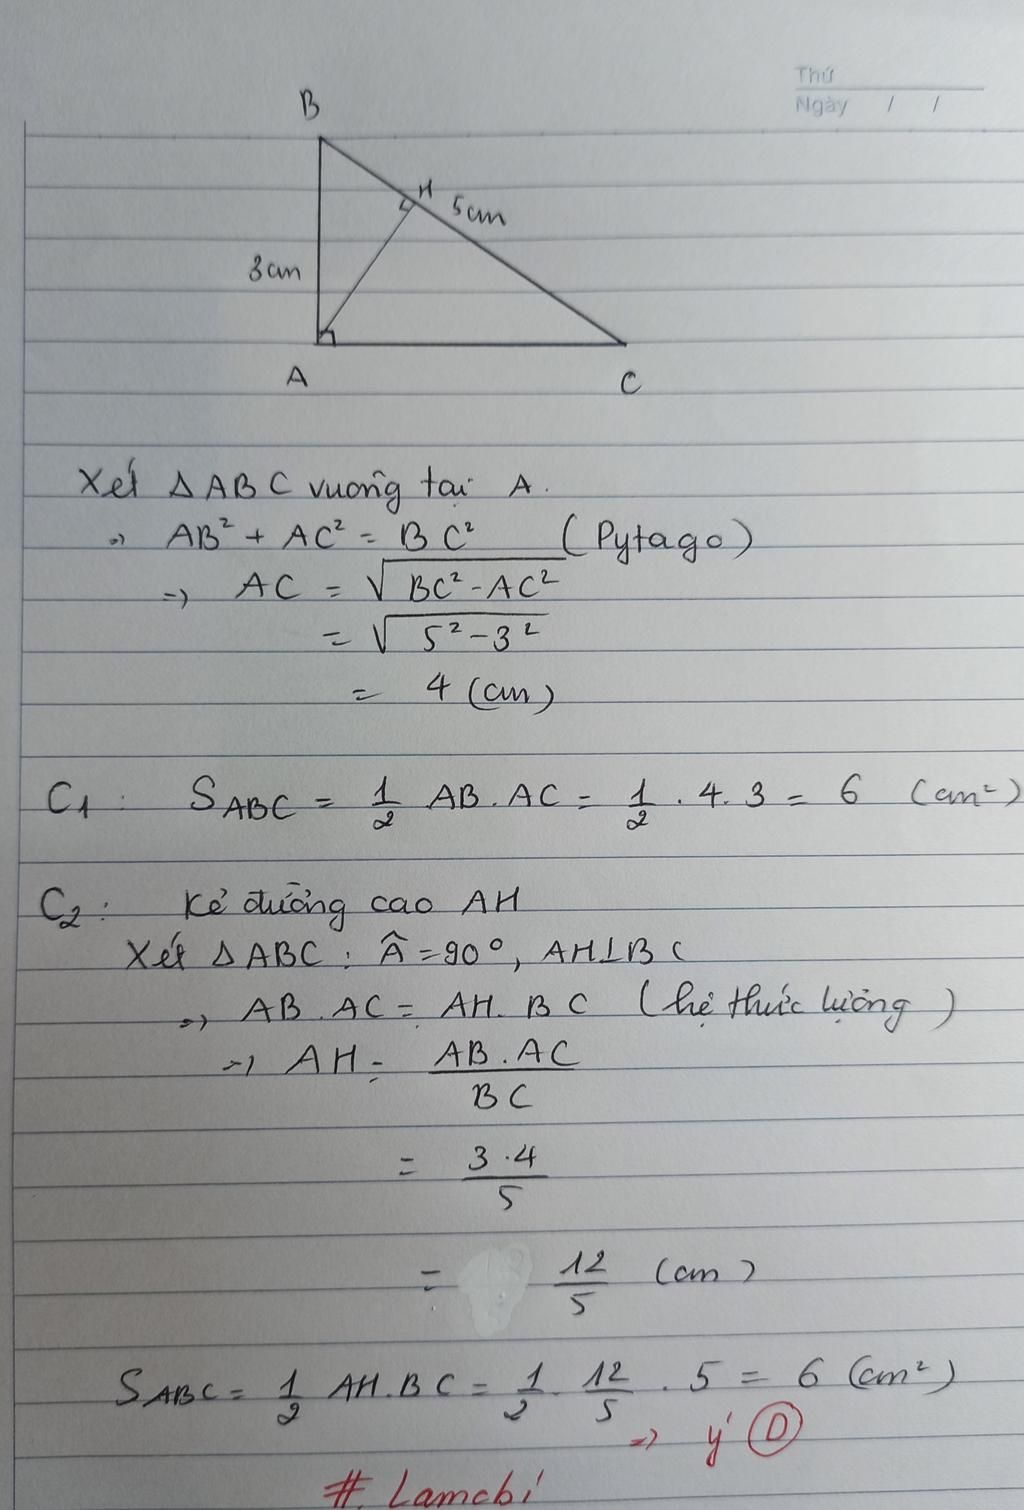 Thứ
Ngày / /
B
H
5cm
3cm
A
C
Xét ΔABC vuông tại A.
=> AB² + AC² = BC² (Pytago)
=> AC = √(BC² - AC²)
= √(5² - 3²)
= 4 (cm)
C1: S_ABC = 1/2 AB.AC = 1/2 . 4. 3 = 6 (cm²)
C2: Kẻ đường cao AH
Xét ΔABC: Â = 90°, AH⊥BC
=> AB.AC = AH.BC (hệ thức lượng)
=> AH = AB.AC/BC
= 3.4/5
= 12/5 (cm)
S_ABC = 1/2 AH.BC = 1/2 . 12/5 . 5 = 6 (cm²)
=> ý D
# Lamchi